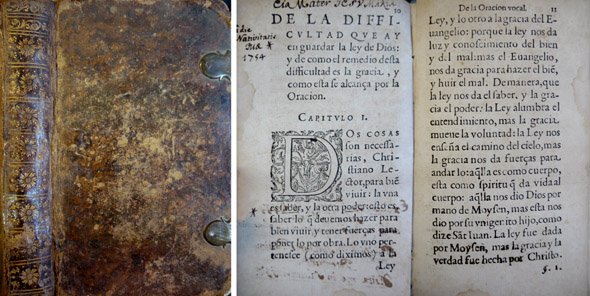 Eia Mater IESV MARIA
10
die
Nativitatis
1754
DE LA DIFFI-
CVLTAD QVE AY
en guardar la ley de Dios:
y de como el remedio desta
dificultad es la gracia, y
como esta se alcança por la
Oracion.
CAPITVLO I.
DOS COSAS
son necessa-
rias, Chri-
stiano Le-
ctor, para biē
viuir: la vna
es saber, y la otra poder: esto es,
saber lo q̃ deuemos hazer para
bien viuir, y tener fuerças para
poner lo por obra. Lo vno per-
tenesce (como diximos) a la
Ley
De la Oracion vocal.
11
Ley, y lo otro a la gracia del E-
uangelio: porque la ley nos da
luz y conoscimiento del bien
y del mal: mas el Euangelio,
nos da gracia para hazer el biē,
y huir el mal. De manera, que
la ley nos da el saber, y la gra-
cia el poder: la Ley alumbra el
entendimiento, mas la gracia
mueue la voluntad: la Ley nos
enseña el camino del cielo, mas
la gracia nos da fuerças para
andar lo: aq̃lla es como cuerpo,
esta como spiritu q̃ da vida al
cuerpo: aq̃lla nos dio Dios por
mano de Moysen, mas esta nos
dio por su vnigenito hijo, como
dize Sāt Iuan. La ley fue dada
por Moysen, mas la gracia y la
verdad fue hecha por Christo.